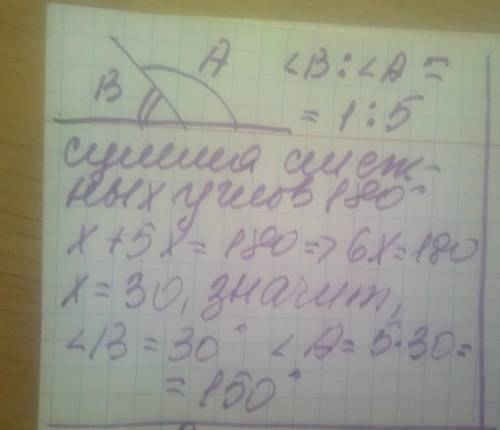 A
B
∠B:∠A =
= 1:5
сумма смеж-
ных углов 180°
x+5x=180=>6x=180
x=30, значит,
∠B=30° ∠A=5·30=
=150°